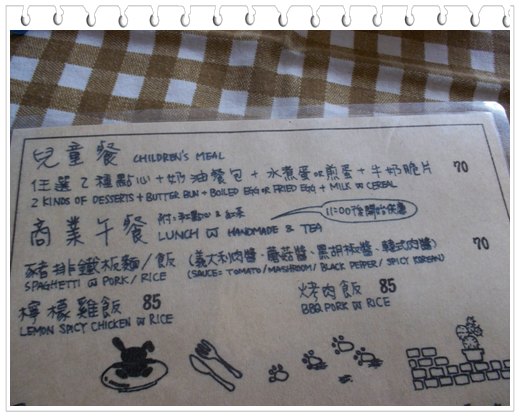 兒童餐 CHILDREN'S MEAL
任選2種點心+奶油餐包+水煮蛋or煎蛋+牛奶脆片 70
2 KINDS OF DESSERTS + BUTTER BUN + BOILED EGG OR FRIED EGG + MILK W CEREAL
商業午餐 附:和點心&紅茶 11:00後開始供應
LUNCH W HANDMADE & TEA
豬排鐵板麵/飯 (義大利肉醬、蘑菇醬、黑胡椒醬、韓式肉醬) 70
SPAGHETTI W PORK/RICE (SAUCE: TOMATO/MASHROOM/BLACK PEPPER/SPICY KOREAN)
檸檬雞飯 85 烤肉飯 85
LEMON SPICY CHICKEN W RICE BBQ PORK W RICE